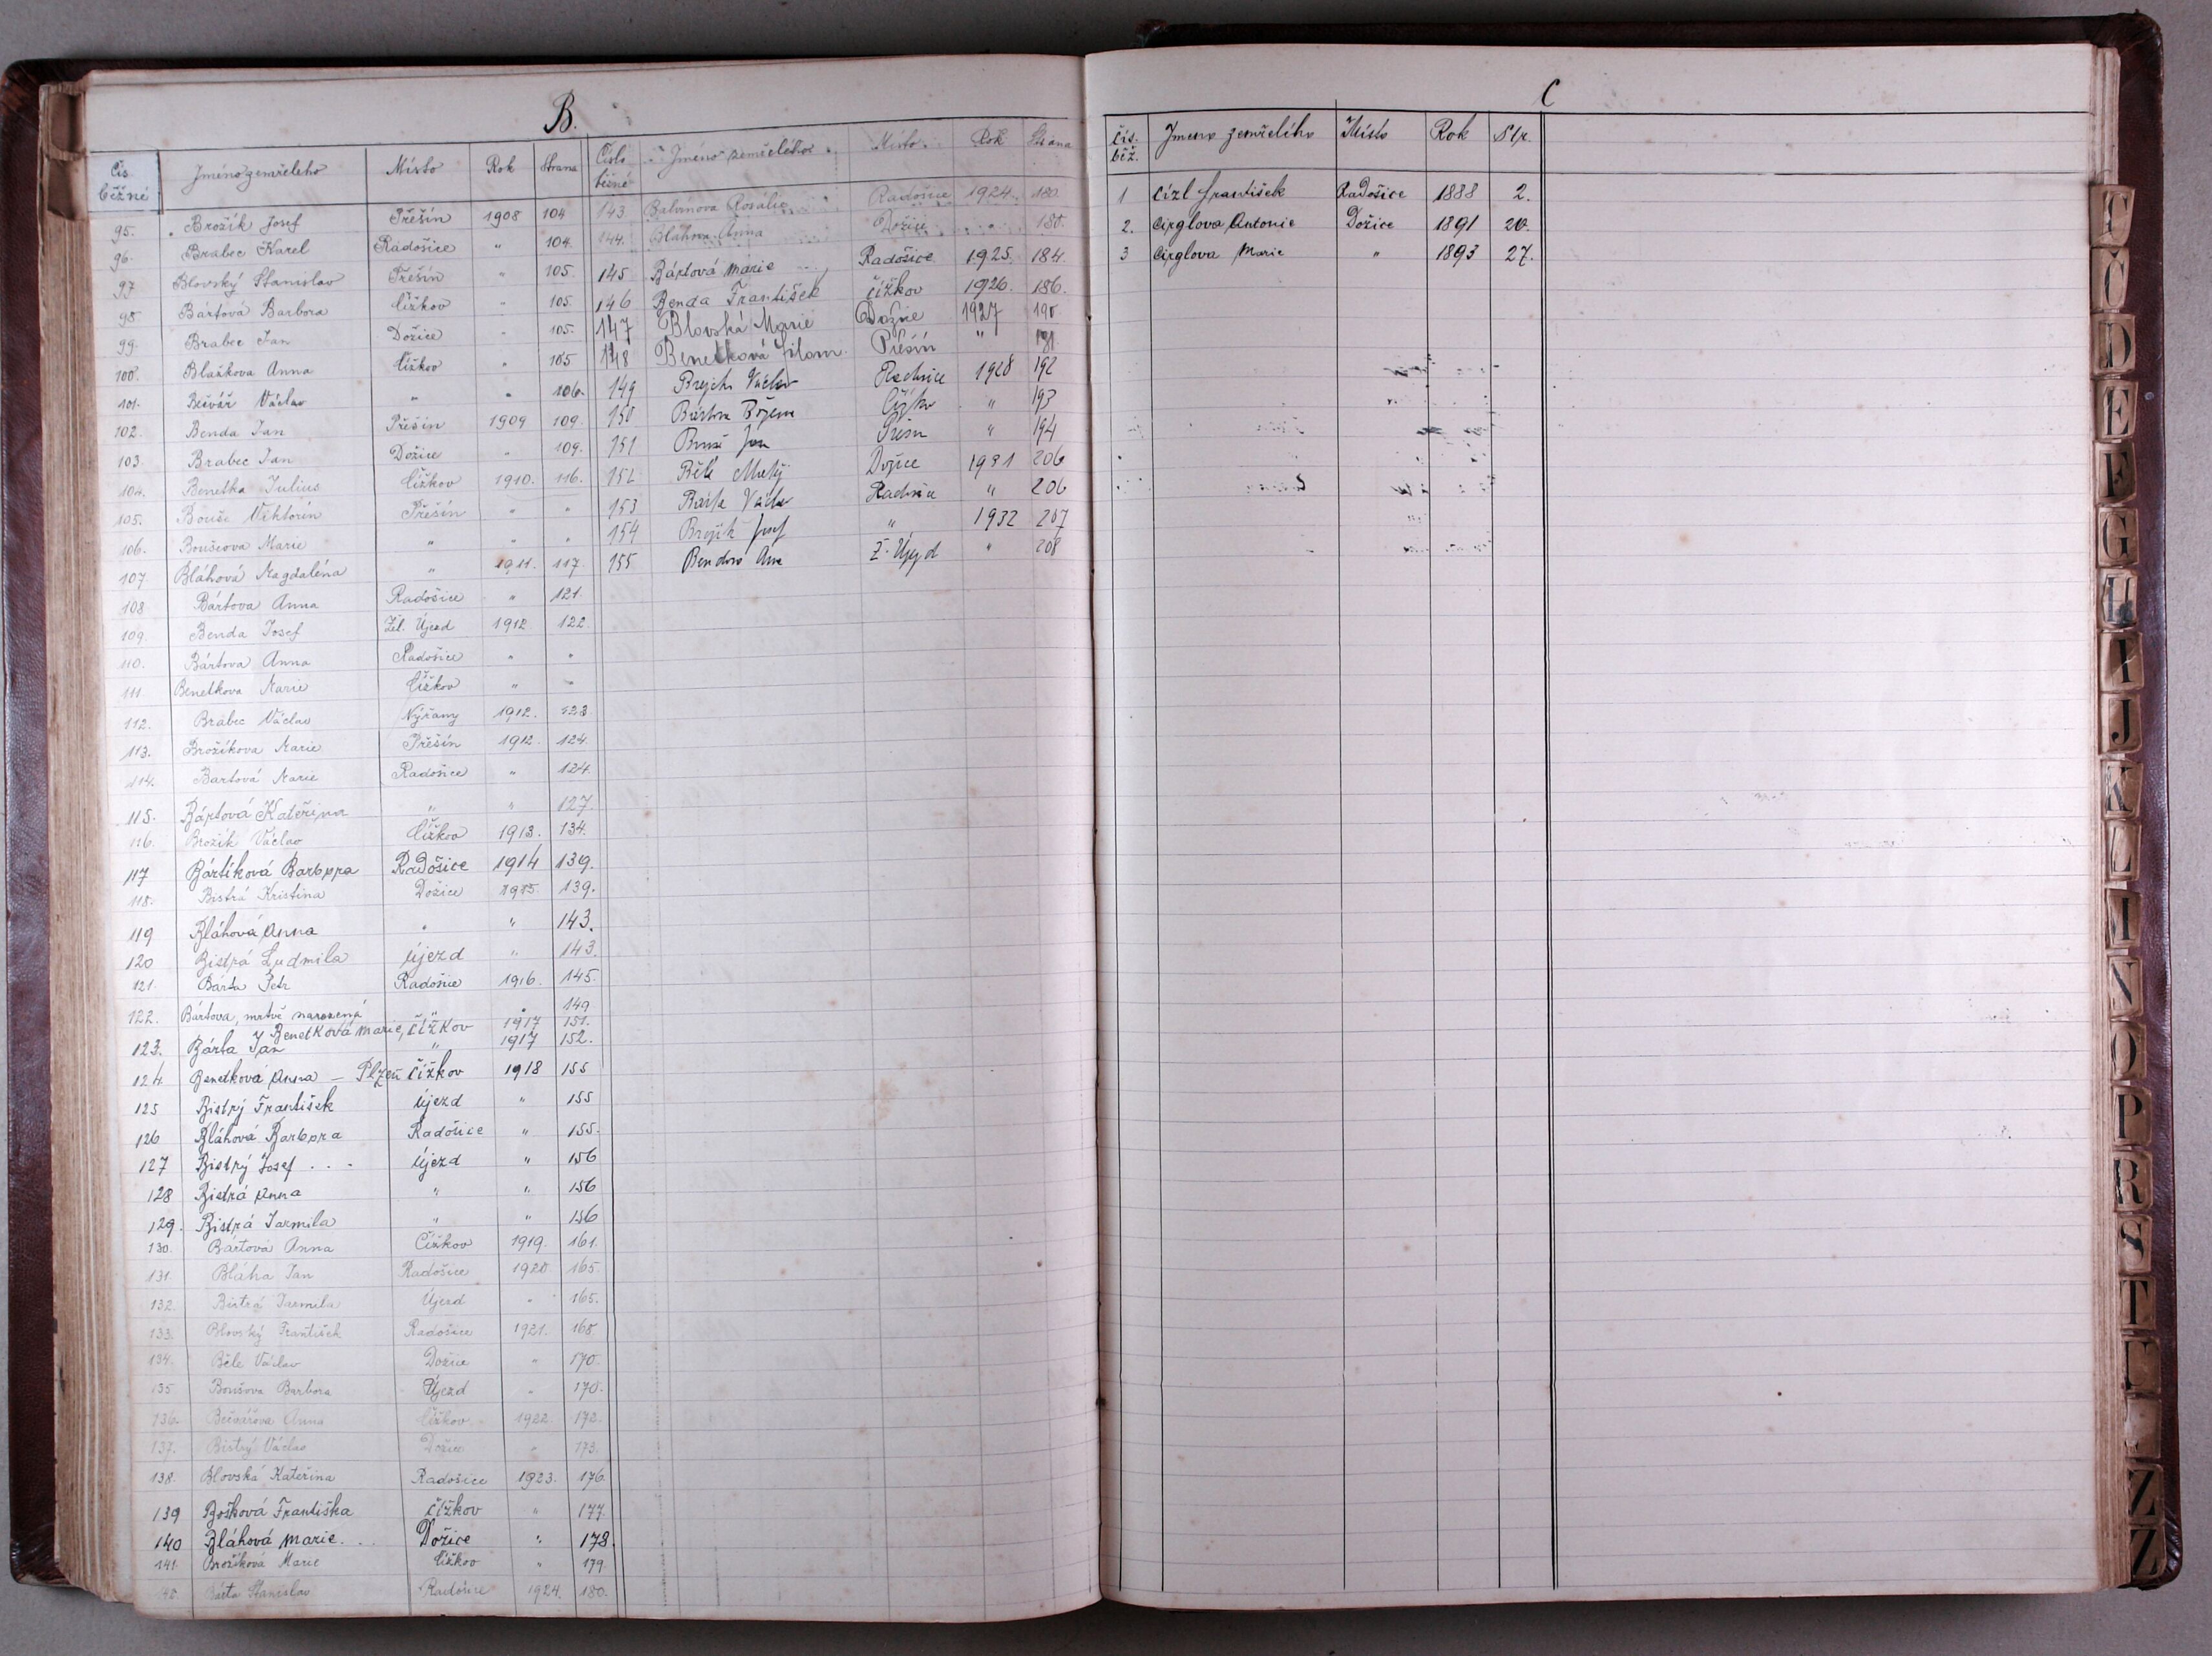 B.
Čís. běžné Jméno zemřelého Místo Rok Strana
95. Brožík Josef Přešín 1908 104
96. Brabec Karel Radošice " 104.
97. Blovský Stanislav Přešín " 105.
98. Bártová Barbora Čížkov " 105.
99. Brabec Jan Dožice " 105.
100. Blažkova Anna Čížkov " 105
101. Bečvář Václav " " 106.
102. Benda Jan Přešín 1909 109.
103. Brabec Jan Dožice " 109.
104. Benetka Julius Čížkov 1910. 116.
105. Bouše Viktorin Přešín " "
106. Boušeova Marie " " "
107. Bláhová Magdaléna " 1911. 117.
108 Bártova Anna Radošice " 121.
109. Benda Josef Žel. Újezd 1912. 122.
110. Bártova Anna Radošice " "
111. Benetkova Marie Čížkov " "
112. Brabec Václav Nýřany 1912. 123
113. Brožíkova Marie Přešín 1912. 124.
114. Bartová Marie Radošice " 124.
115. Bártová Kateřina " " 127.
116. Brožík Václav Čížkov 1913. 134.
117 Bártíková Barbora Radošice 1914 139.
118. Bistrá Kristina Dožice 1915. 139.
119 Bláhová Anna " " 143.
120 Bistrá Ludmila Újezd " 143.
121. Bárta Petr Radošice 1916. 145.
122. Bártova, mrtvě narozená " " 149
Benetková Marie, Čížkov 1917 151.
123. Bárta Jan " 1917 152.
124. Benetková Anna – Plzeň Čížkov 1918 155
125 Bistrý František Újezd " 155
126 Bláhová Barbora Radošice " 155.
127 Bistrý Josef . . . Újezd " 156
128 Bistrá Anna " " 156
129. Bistrá Jarmila " " 156
130. Bártová Anna Čížkov 1919. 161.
131. Bláha Jan Radošice 1920 165.
132. Bistrá Jarmila Újezd " 165.
133. Blovský František Radošice 1921. 168.
134. Běle Václav Dožice " 170.
135 Boušova Barbora Újezd " 170.
136. Bečvářova Anna Čížkov 1922. 172.
137. Bistrý Václav Dožice " 173.
138. Blovská Kateřina Radošice 1923. 176.
139 Bošková Františka Čížkov " 177.
140 Bláhová Marie. . . Dožice " 178.
141. Brožíková Marie Čížkov " 179
142. Bárta Stanislav Radošice 1924. 180.
Číslo běžné Jméno zemřelého Místo Rok Strana
143 Rosálie Radošice 1924. 180.
144. Bláhova Anna Dožice 180.
145 Bártová Marie Radošice 1925. 184.
146 Benda František Čížkov 1926. 186.
147 Blovská Marie Dožice 1927 190
148 Benetková Filom. Přešín "
149 Brejcha Václav 1928 192
150 Bártova Božena Čížkov " 193
151 Jan Přešín " 194
152 Běle Matěj Dožice 1931 206
153 Bárta Václav " 206
154 Josef " 1932 207
155 Bendová Anna Ž. Újezd " 208
C
Čís. běž. Jmeno zemřelího Místo Rok Str.
1 Cízl František Radošice 1888 2.
2. Cirglova Antonie Dožice 1891 20.
3 Cirglova Marie " 1893 27.
T
Č
D
E
F
G
H
I
J
K
L
N
O
P
R
S
T
Z
Z